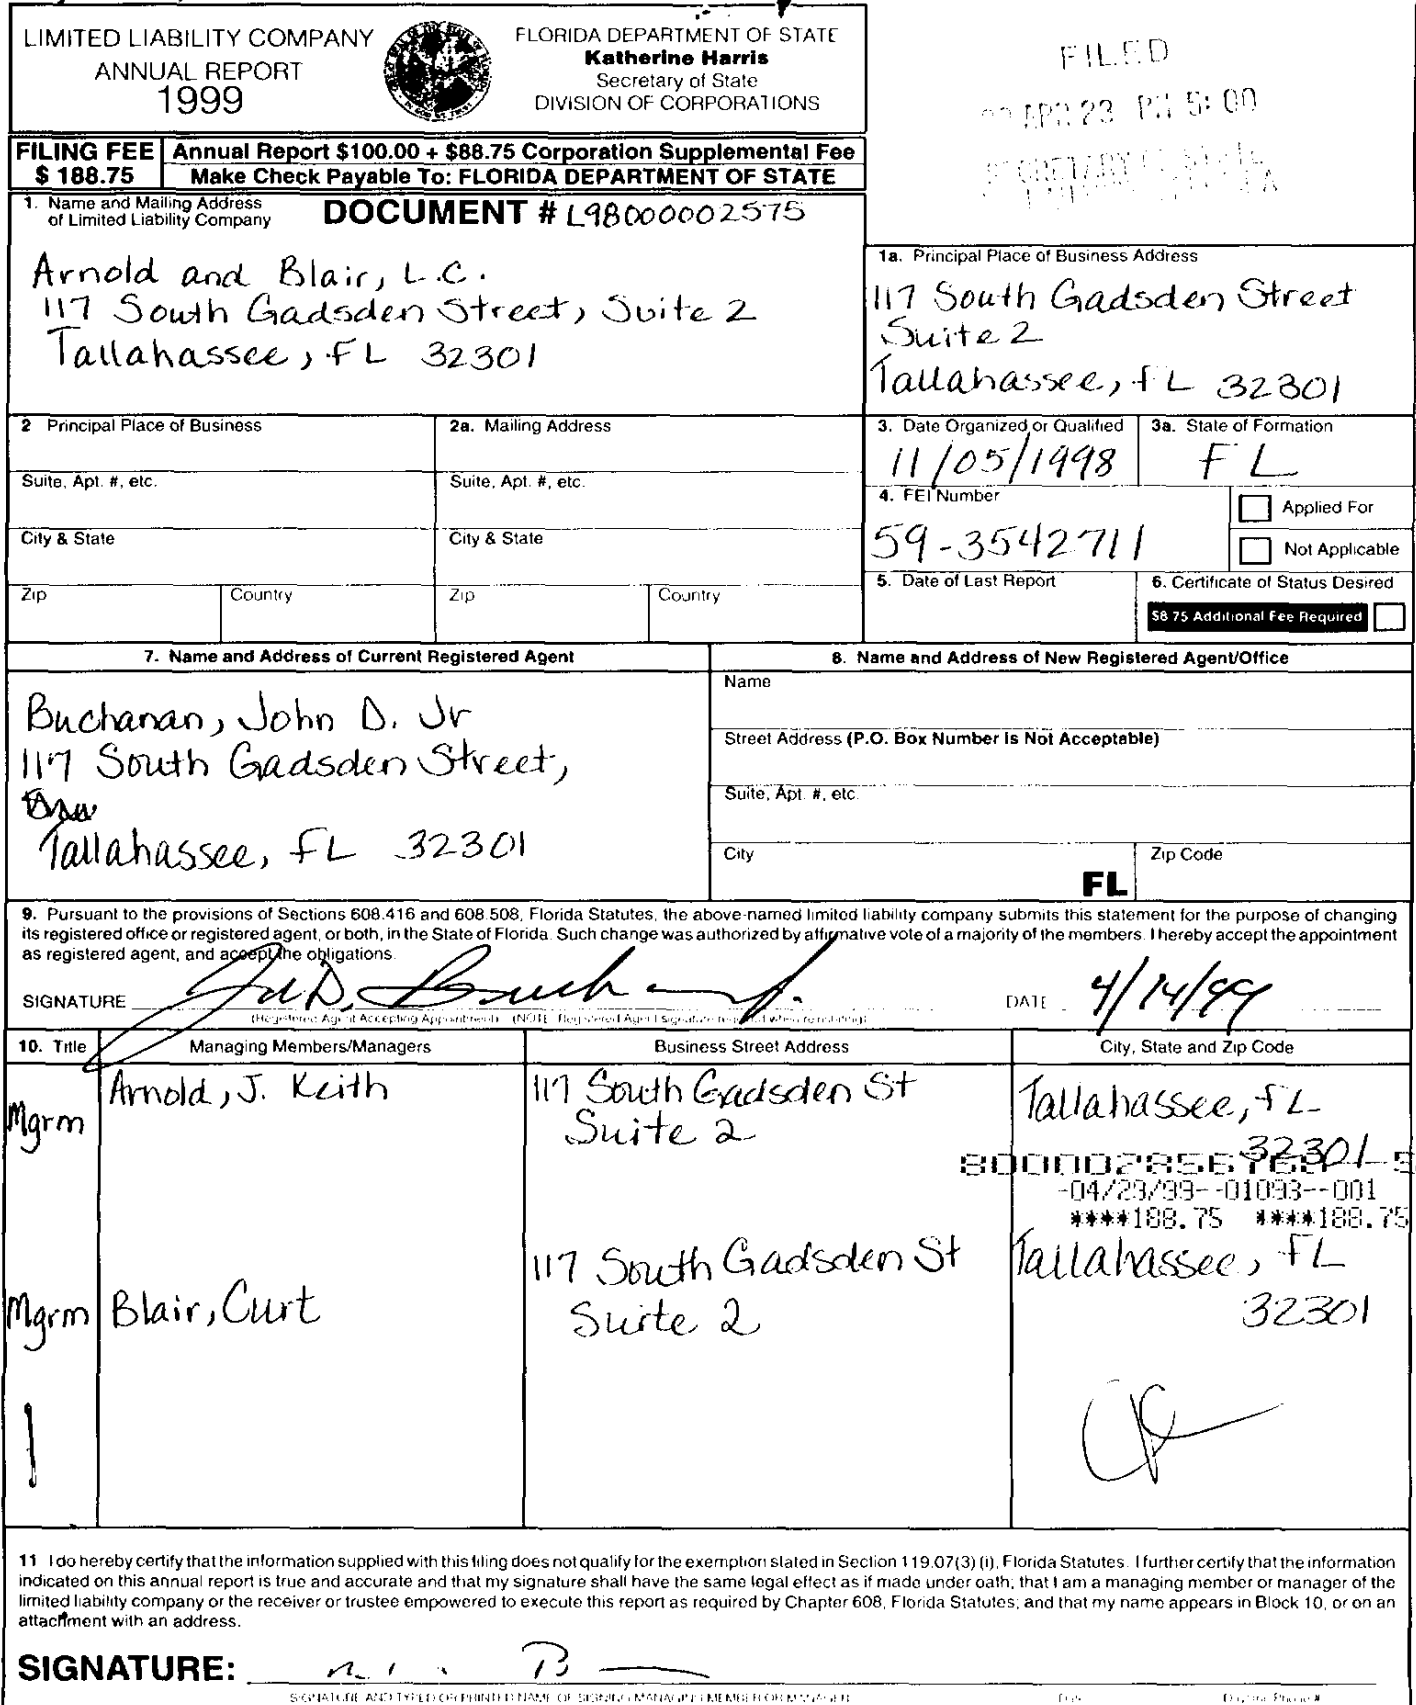 LIMITED LIABILITY COMPANY
ANNUAL REPORT
1999
FLORIDA DEPARTMENT OF STATE
Katherine Harris
Secretary of State
DIVISION OF CORPORATIONS
FILED
APR 23 PM 5:00
SECRETARY OF STATE
FILING FEE
$ 188.75
Annual Report $100.00 + $88.75 Corporation Supplemental Fee
Make Check Payable To: FLORIDA DEPARTMENT OF STATE
1. Name and Mailing Address
of Limited Liability Company
DOCUMENT # L98000002575
Arnold and Blair, L.C.
117 South Gadsden Street, Suite 2
Tallahassee, FL 32301
1a. Principal Place of Business Address
117 South Gadsden Street
Suite 2
Tallahassee, FL 32301
2 Principal Place of Business
2a. Mailing Address
3. Date Organized or Qualified
11/05/1998
3a. State of Formation
FL
Suite, Apt. #, etc.
Suite, Apt. #, etc.
4. FEI Number
59-3542711
Applied For
Not Applicable
City & State
City & State
5. Date of Last Report
6. Certificate of Status Desired
$8.75 Additional Fee Required
Zip
Country
Zip
Country
7. Name and Address of Current Registered Agent
Buchanan, John D. Jr
117 South Gadsden Street,
Tallahassee, FL 32301
8. Name and Address of New Registered Agent/Office
Name
Street Address (P.O. Box Number is Not Acceptable)
Suite, Apt. #, etc.
City
FL
Zip Code
9. Pursuant to the provisions of Sections 608.416 and 608.508, Florida Statutes, the above-named limited liability company submits this statement for the purpose of changing
its registered office or registered agent, or both, in the State of Florida. Such change was authorized by affirmative vote of a majority of the members. I hereby accept the appointment
as registered agent, and accept the obligations.
SIGNATURE
DATE 4/14/99
(Registered Agent Accepting Appointment) (NOTE: Registered Agent signature required when reinstating)
10. Title
Managing Members/Managers
Business Street Address
City, State and Zip Code
Mgrm
Arnold, J. Keith
117 South Gadsden St
Suite 2
Tallahassee, FL
32301
800002856768--5
-04/29/99--01093--001
****188.75 ****188.75
Mgrm
Blair, Curt
117 South Gadsden St
Suite 2
Tallahassee, FL
32301
11 I do hereby certify that the information supplied with this filing does not qualify for the exemption stated in Section 119.07(3) (i), Florida Statutes. I further certify that the information
indicated on this annual report is true and accurate and that my signature shall have the same legal effect as if made under oath; that I am a managing member or manager of the
limited liability company or the receiver or trustee empowered to execute this report as required by Chapter 608, Florida Statutes; and that my name appears in Block 10, or on an
attachment with an address.
SIGNATURE:
SIGNATURE AND TYPED OR PRINTED NAME OF SIGNING MANAGING MEMBER OR MANAGER
Date
Daytime Phone #